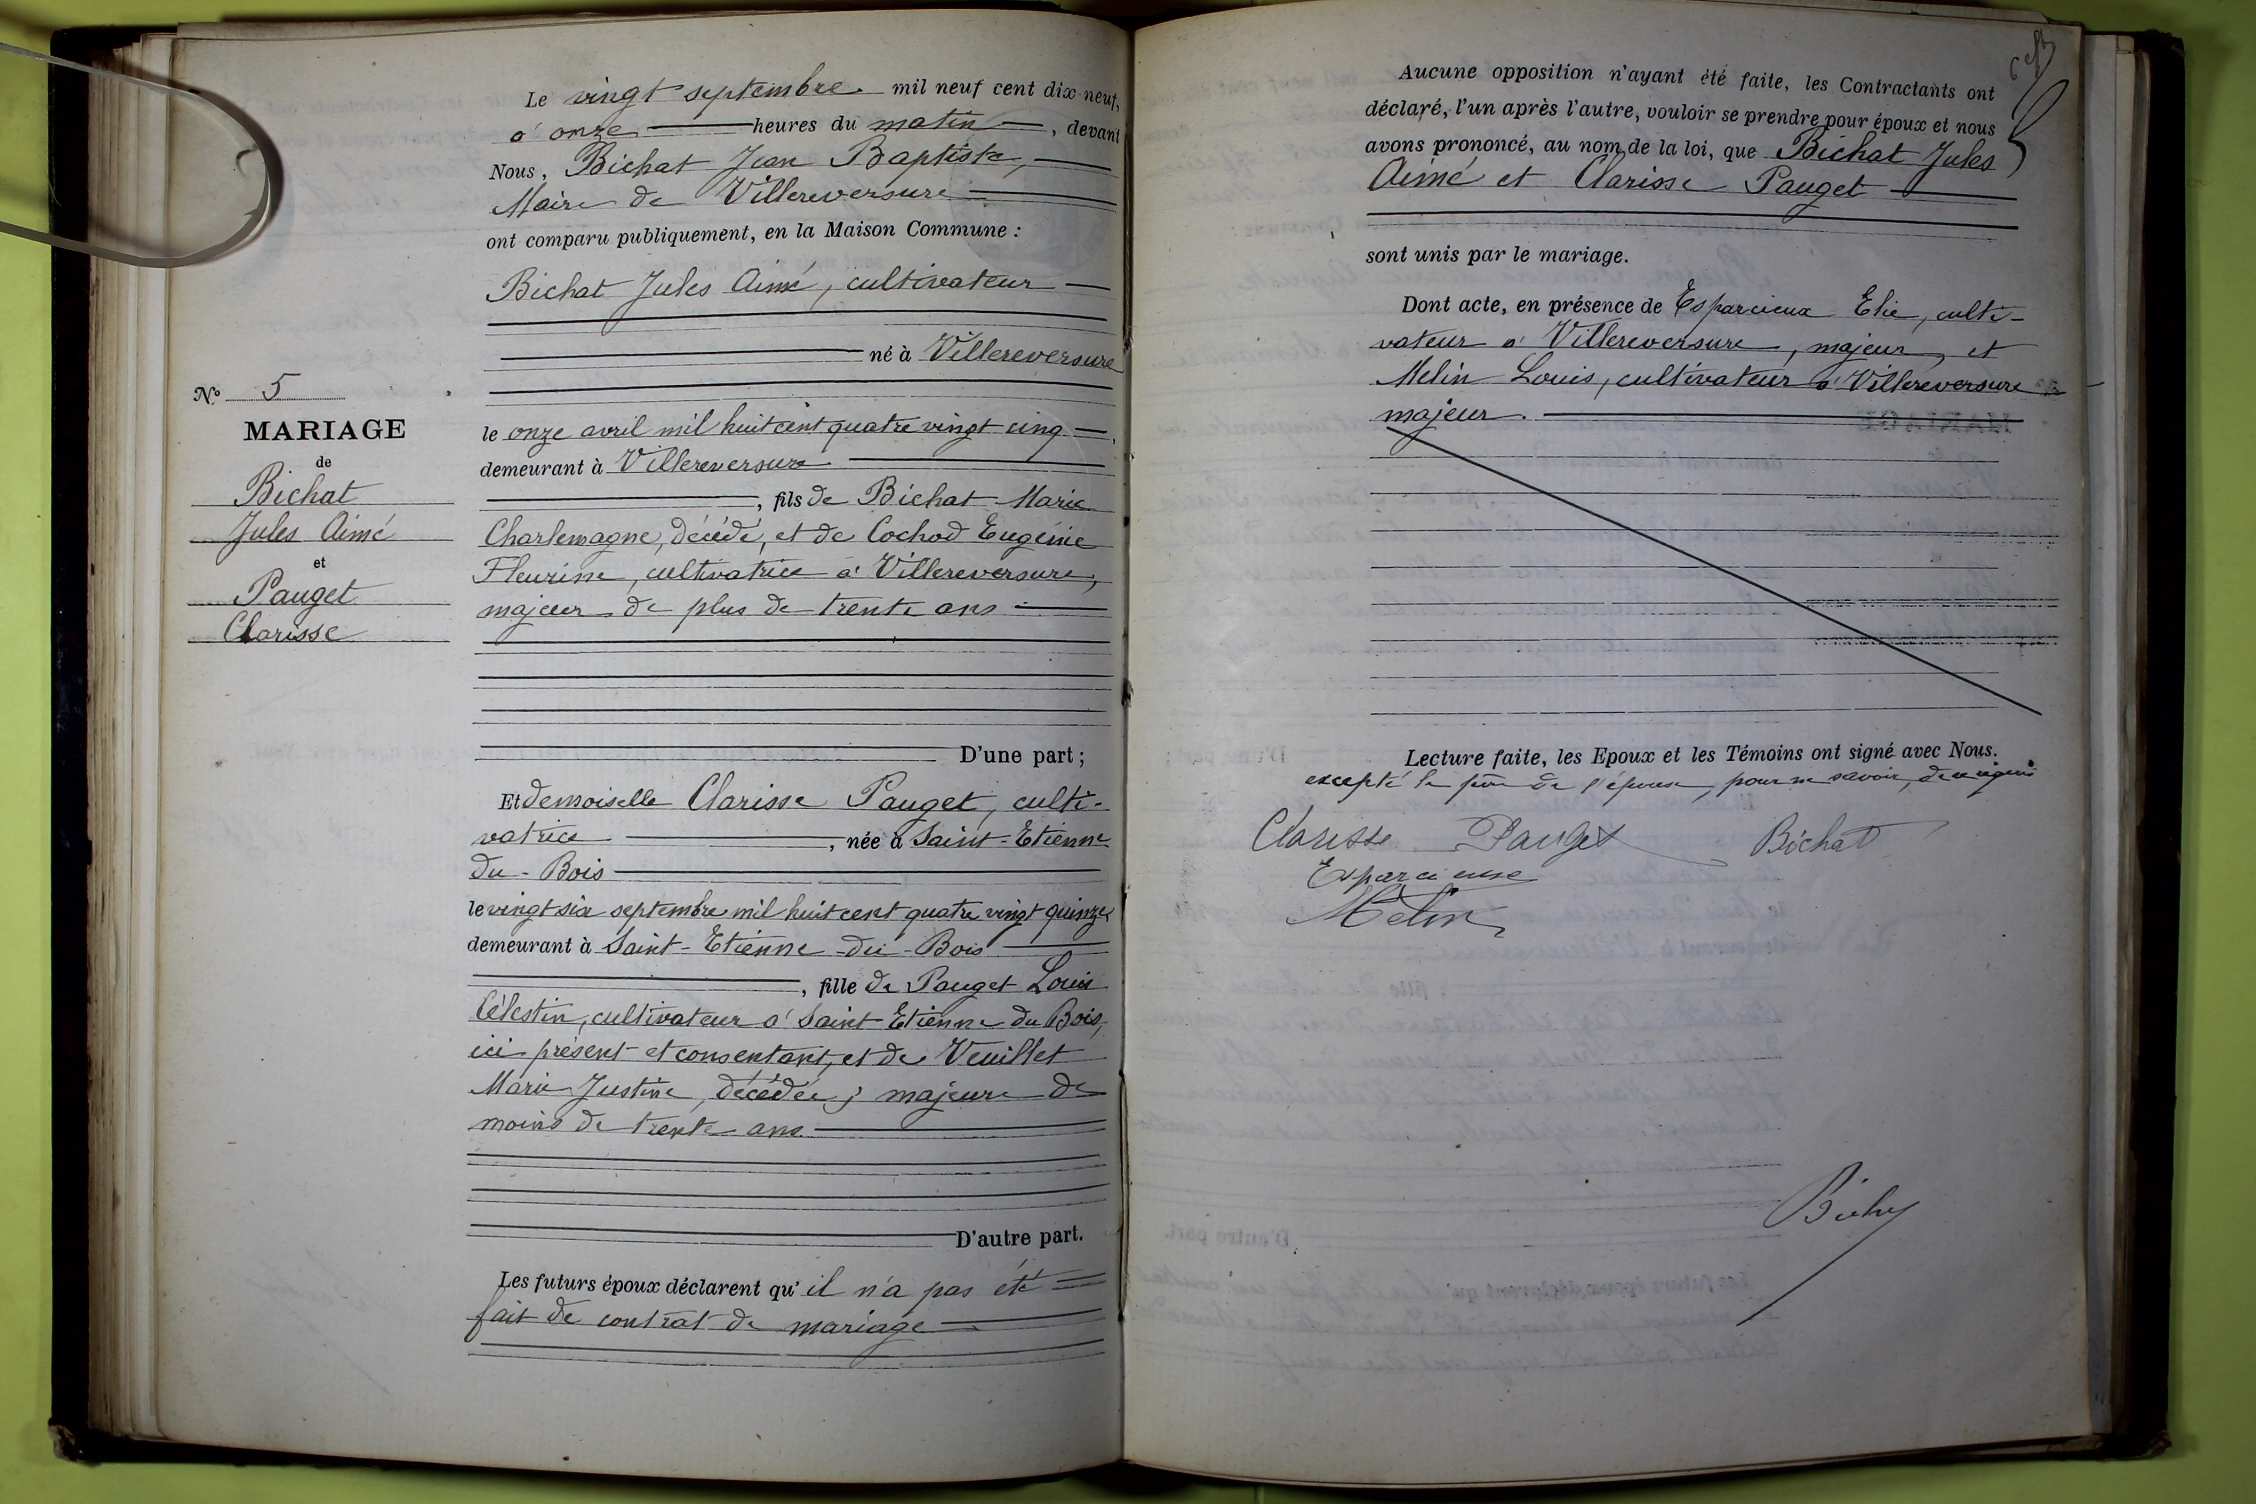 Le vingt septembre mil neuf cent dix-neuf,
à onze heures du matin, devant
Nous, Bichat Jean Baptiste,
Maire de Villereversure
ont comparu publiquement, en la Maison Commune :
Bichat Jules Aimé, cultivateur
né à Villereversure
le onze avril mil huit cent quatre vingt cinq,
demeurant à Villereversure
, fils de Bichat Marie
Charlemagne, décédé, et de Cochod Eugénie
Fleurine, cultivatrice à Villereversure,
majeur de plus de trente ans
D'une part ;
Et demoiselle Clarisse Pauget, culti-
vatrice, née à Saint-Etienne
du-Bois
le vingt six septembre mil huit cent quatre vingt quinze
demeurant à Saint-Etienne-du-Bois
, fille de Pauget Louis
Célestin, cultivateur à Saint Etienne du Bois,
ici présent et consentant, et de Veuillet
Marie Justine, décédée ; majeure de
moins de trente ans
D'autre part.
Les futurs époux déclarent qu'il n'a pas été
fait de contrat de mariage
No 5
MARIAGE
de
Bichat
Jules Aimé
et
Pauget
Clarisse
Aucune opposition n'ayant été faite, les Contractants ont
déclaré, l'un après l'autre, vouloir se prendre pour époux et nous
avons prononcé, au nom de la loi, que Bichat Jules
Aimé et Clarisse Pauget
sont unis par le mariage.
Dont acte, en présence de Esparcieux Elie, culti-
vateur à Villereversure, majeur, et
Melin Louis, cultivateur à Villereversure
majeur.
Lecture faite, les Epoux et les Témoins ont signé avec Nous.
excepté le père de l'épouse, pour ne savoir, de ce requis
Clarisse Pauget Bichat
Esparcieux
Melin